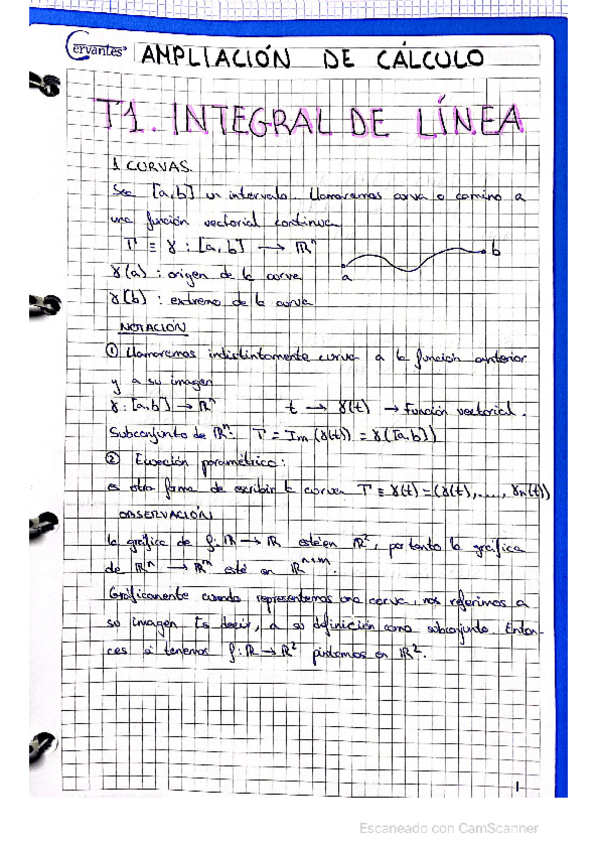 Cervantes
AMPLIACIÓN DE CÁLCULO
T1. INTEGRAL DE LÍNEA
1 CURVAS.
Sea [a,b] un intervalo. Llamaremos curva o camino a
una función vectorial continua
Γ ≡ γ : [a,b] → ℝⁿ
a
b
γ(a) : origen de la curva
γ(b) : extremo de la curva
NOTACIÓN
① Llamaremos indistintamente curva a la función anterior
y a su imagen
γ : [a,b] → ℝⁿ t → γ(t) → Función vectorial.
Subconjunto de ℝⁿ: Γ = Im (γ(t)) = γ([a,b])
② Ecuación paramétrica:
es otra forma de escribir la curva Γ ≡ γ(t) = (γ(t), ..., γn(t))
OBSERVACIÓN
la gráfica de f: ℝ → ℝ está en ℝ², por tanto la gráfica
de ℝⁿ → ℝⁿ está en ℝⁿ⁺ᵐ.
Gráficamente cuando representemos una curva, nos referimos a
su imagen Es decir, a su definición como subconjunto. Enton-
ces si tenemos f: ℝ → ℝ² pintamos en ℝ².
1
Escaneado con CamScanner